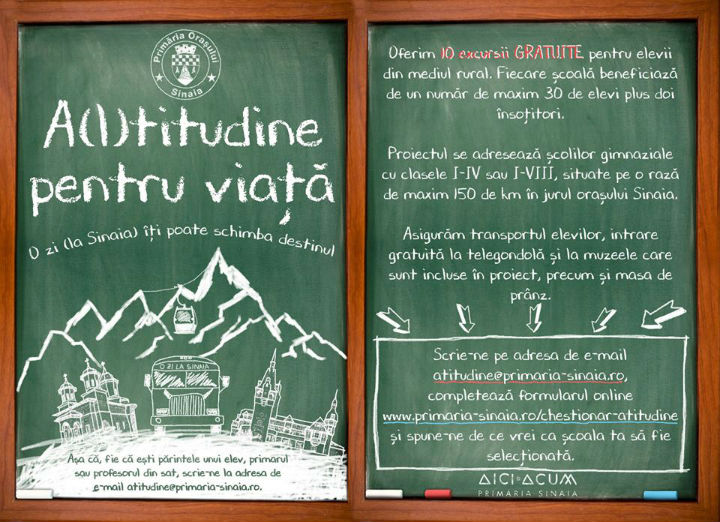 Primăria Orașului
Sinaia
A(l)titudine
pentru viață
O zi (la Sinaia) îți poate schimba destinul
O ZI LA SINAIA
Așa că, fie că ești părintele unui elev, primarul
sau profesorul din sat, scrie-ne la adresa de
e-mail atitudine@primaria-sinaia.ro.
Oferim 10 excursii GRATUITE pentru elevii
din mediul rural. Fiecare școală beneficiază
de un număr de maxim 30 de elevi plus doi
însoțitori.
Proiectul se adresează școlilor gimnaziale
cu clasele I-IV sau I-VIII, situate pe o rază
de maxim 150 de km în jurul orașului Sinaia.
Asigurăm transportul elevilor, intrare
gratuită la telegondolă și la muzeele care
sunt incluse în proiect, precum și masa de
prânz.
Scrie-ne pe adresa de e-mail
atitudine@primaria-sinaia.ro,
completează formularul online
www.primaria-sinaia.ro/chestionar-atitudine
și spune-ne de ce vrei ca școala ta să fie
selecționată.
AICI ACUM
PRIMĂRIA SINAIA